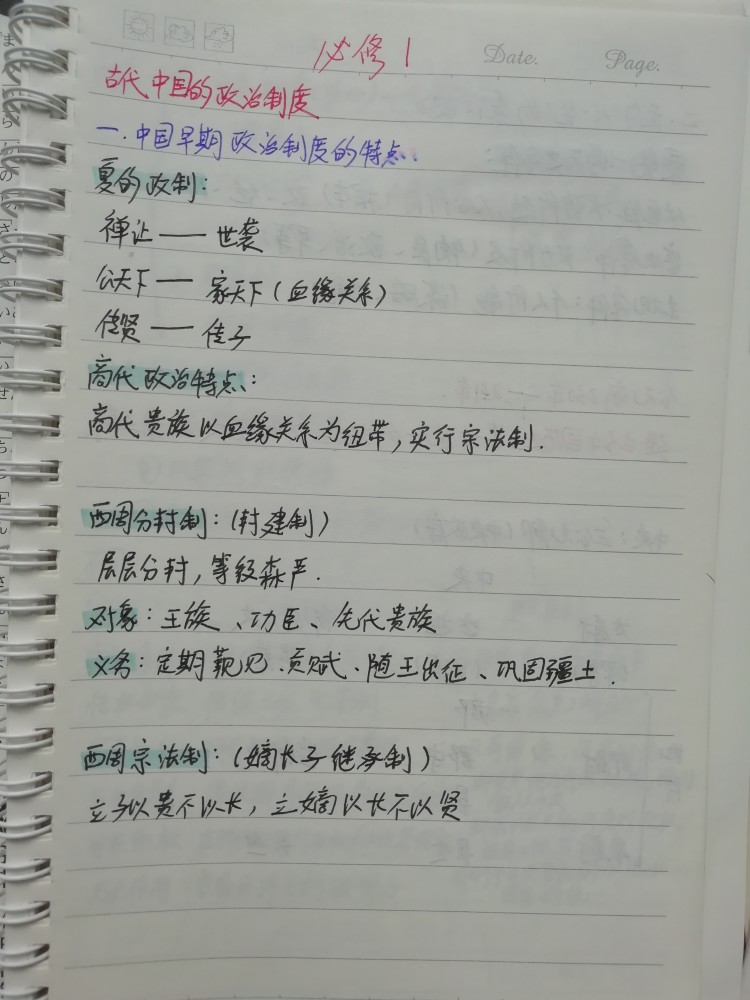 必修1
Date.
Page.
古代中国的政治制度
一.中国早期政治制度的特点:
夏的政制:
禅让——世袭
公天下——家天下(血缘关系)
传贤——传子
商代政治特点:
商代贵族以血缘关系为纽带,实行宗法制.
西周分封制:(封建制)
层层分封,等级森严.
对象:王族、功臣、先代贵族
义务:定期觐见、贡赋、随王出征、巩固疆土.
西周宗法制:(嫡长子继承制)
立子以贵不以长,立嫡以长不以贤